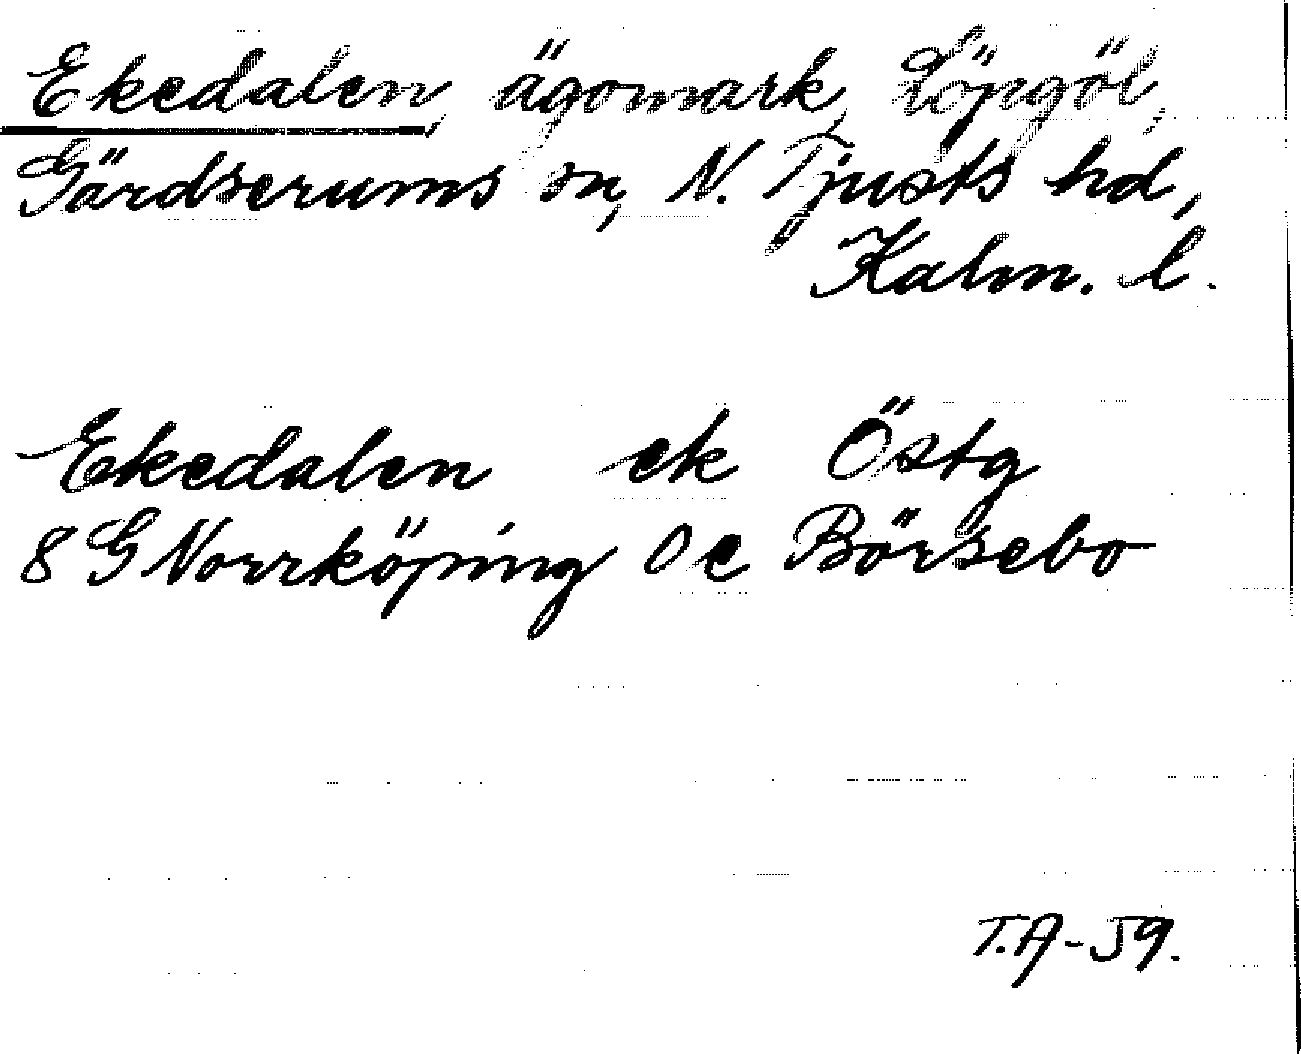 Ekedalen, ägomark, Löpgöl,
Gärdserums sn, N. Tjusts hd,
Kalm. l.
Ekedalen ek Östg
8 G Norrköping 0 e Börsebo
T.A-59.